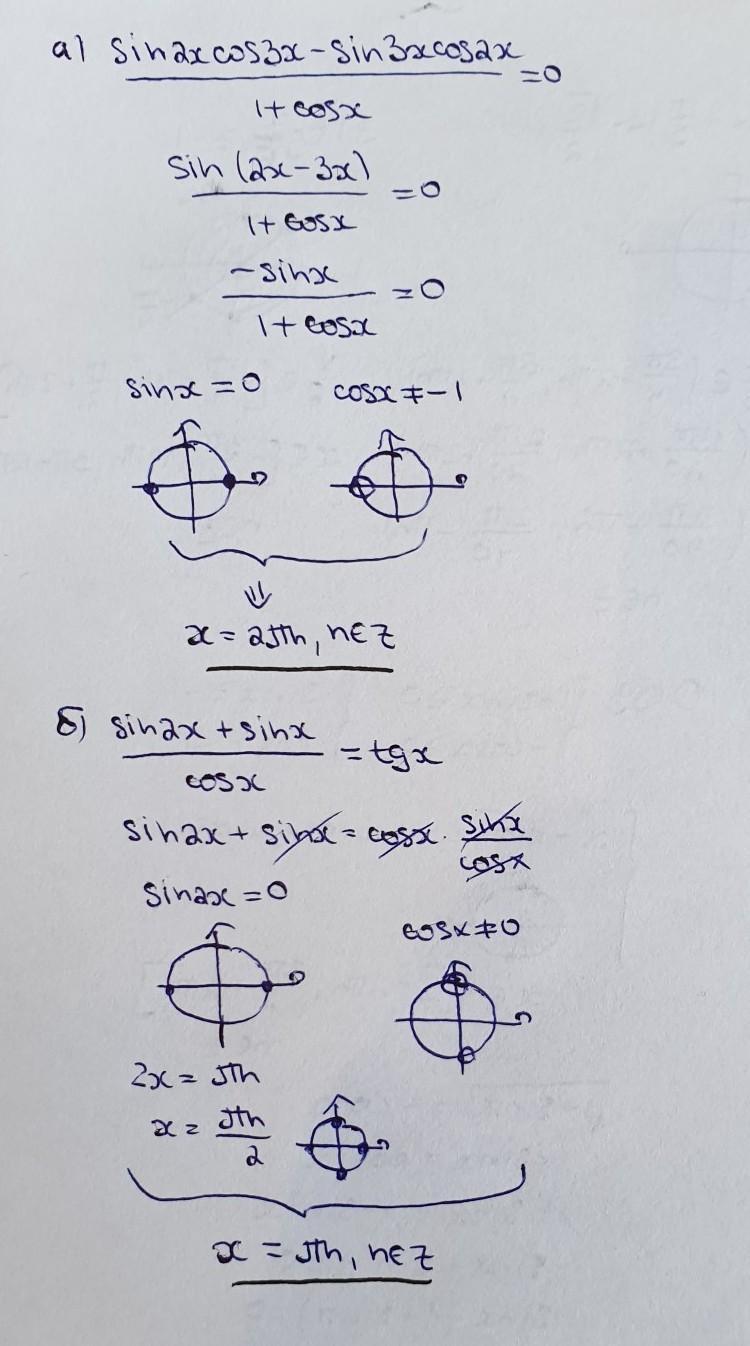 а) sin2xcos3x - sin3xcos2x
= 0
1 + cosx
sin (2x - 3x)
= 0
1 + cosx
-sinx
= 0
1 + cosx
sinx = 0 cosx ≠ -1
⇓
x = 2πn, n∈Z
б) sin2x + sinx
= tgx
cosx
sin2x + sinx = cosx · sinx
cosx
sin2x = 0
cosx ≠ 0
2x = πn
x = πn
2
x = πn, n∈Z